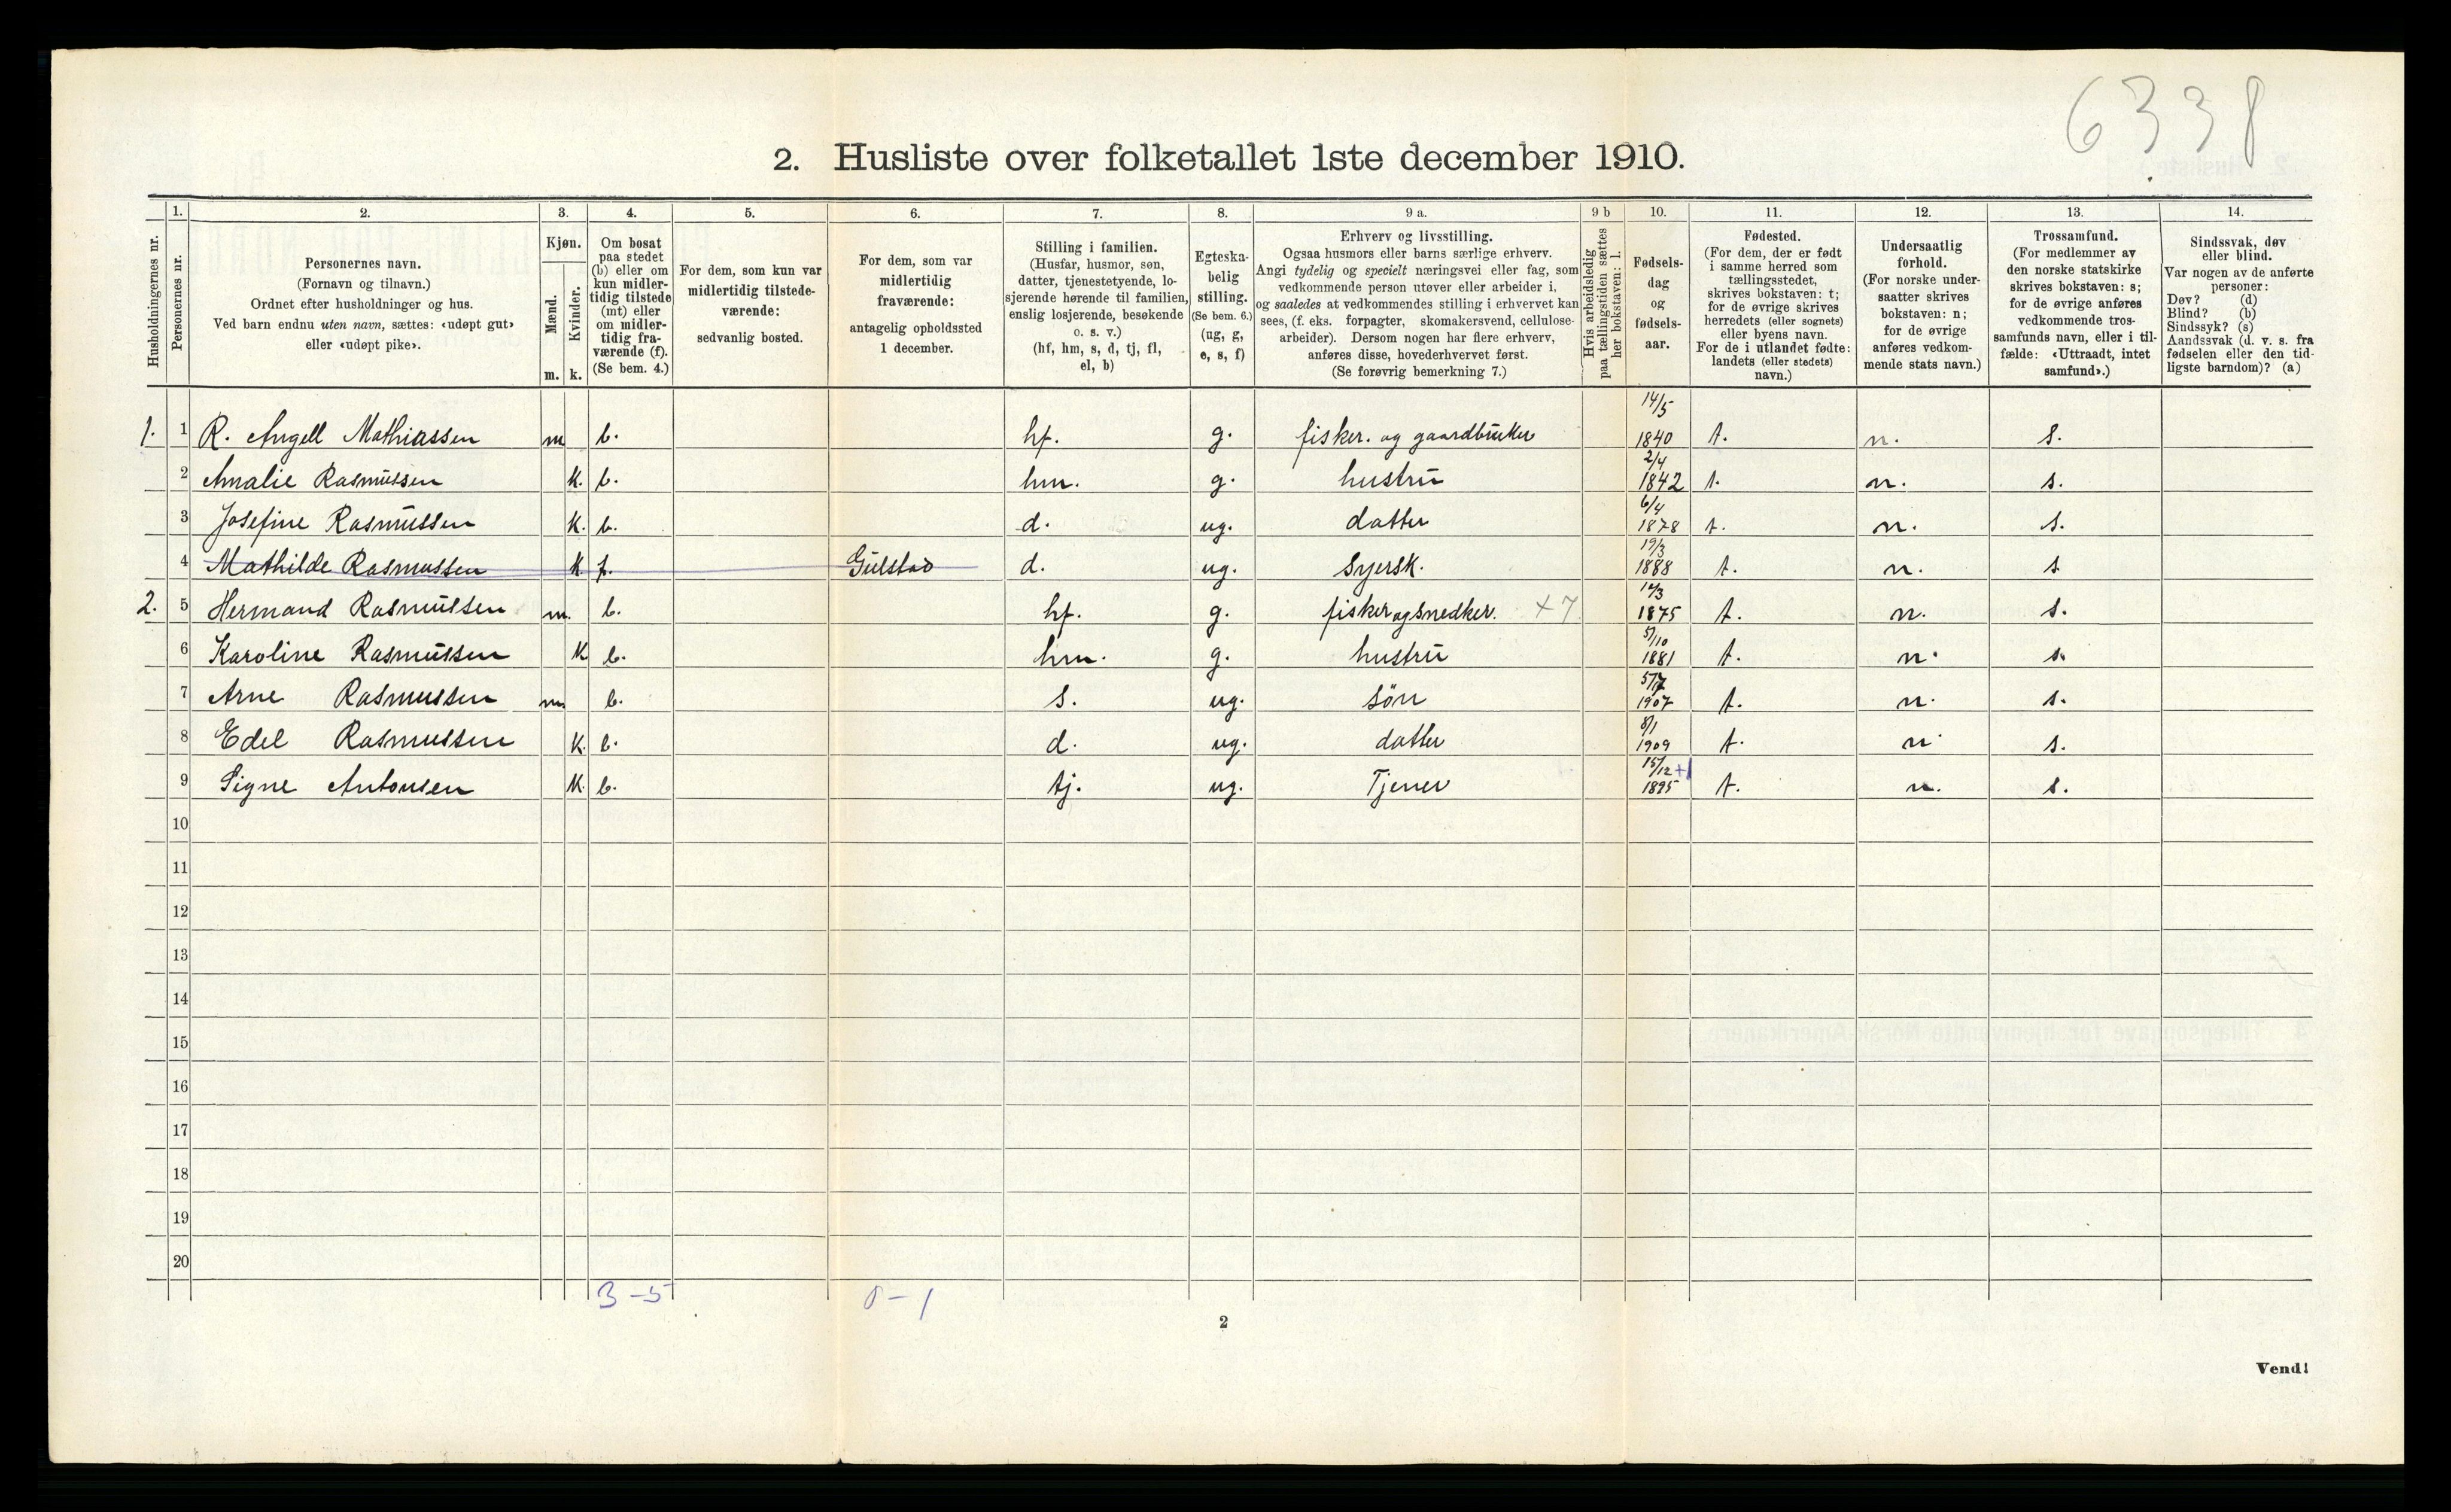 6338
2. Husliste over folketallet 1ste december 1910.
Husholdningernes nr.
1.
Personernes nr.
2.
Personernes navn.
(Fornavn og tilnavn.)
Ordnet efter husholdninger og hus.
Ved barn endnu uten navn, sættes: «udøpt gut»
eller «udøpt pike».
3.
Kjøn.
Mænd.
m.
Kvinder.
k.
4.
Om bosat
paa stedet
(b) eller om
kun midler-
tidig tilstede
(mt) eller
om midler-
tidig fra-
værende (f).
(Se bem. 4.)
5.
For dem, som kun var
midlertidig tilstede-
værende:
sedvanlig bosted.
6.
For dem, som var
midlertidig
fraværende:
antagelig opholdssted
1 december.
7.
Stilling i familien.
(Husfar, husmor, søn,
datter, tjenestetyende, lo-
sjerende hørende til familien,
enslig losjerende, besøkende
o. s. v.)
(hf, hm, s, d, tj, fl,
el, b)
8.
Egteska-
belig
stilling.
(Se bem. 6.)
(ug, g,
e, s, f)
9 a.
Erhverv og livsstilling.
Ogsaa husmors eller barns særlige erhverv.
Angi tydelig og specielt næringsvei eller fag, som
vedkommende person utøver eller arbeider i,
og saaledes at vedkommendes stilling i erhvervet kan
sees, (f. eks. forpagter, skomakersvend, cellulose-
arbeider). Dersom nogen har flere erhverv,
anføres disse, hovederhvervet først.
(Se forøvrig bemerkning 7.)
9 b
Hvis arbeidsledig
paa tællingstiden sættes
her bokstaven: l.
10.
Fødsels-
dag
og
fødsels-
aar.
11.
Fødested.
(For dem, der er født
i samme herred som
tællingsstedet,
skrives bokstaven: t;
for de øvrige skrives
herredets (eller sognets)
eller byens navn.
For de i utlandet fødte:
landets (eller stedets)
navn.)
12.
Undersaatlig
forhold.
(For norske under-
saatter skrives
bokstaven: n;
for de øvrige
anføres vedkom-
mende stats navn.)
13.
Trossamfund.
(For medlemmer av
den norske statskirke
skrives bokstaven: s;
for de øvrige anføres
vedkommende tros-
samfunds navn, eller i til-
fælde: «Uttraadt, intet
samfund».)
14.
Sindssvak, døv
eller blind.
Var nogen av de anførte
personer:
Døv? (d)
Blind? (b)
Sindssyk? (s)
Aandssvak (d. v. s. fra
fødselen eller den tid-
ligste barndom)? (a)
1. 1 R. Angell Mathiassen m b. hf. g. fisker. og gaardbruker 14/5 1840 t. n. s.
2 Amalie Rasmussen K. b. hm. g. hustru 2/4 1842 t. n. s.
3 Josefine Rasmussen K. b. d. ug. datter 6/4 1878 t. n. s.
4 Mathilde Rasmussen K f. Gulstad d. ug. Syersk. 19/3 1888 t. n. s
2. 5 Hermand Rasmussen m. b. hf. g. fisker og snedker. +7 1875 t. n. s.
6 Karoline Rasmussen K b. hm. g. hustru 5/10 1881 t. n. s.
7 Arne Rasmussen m. b. s. ug. søn 5/7 1907 t. n. s.
8 Edel Rasmussen K. b. d. ug. datter 8/1 1909 t. n s.
9 Signe Antonsen K. b. tj. ug. Tjener 15/12 +1 1895 t. n. s.
10
11
12
13
14
15
16
17
18
19
20
3-5 0-1
2
Vend!